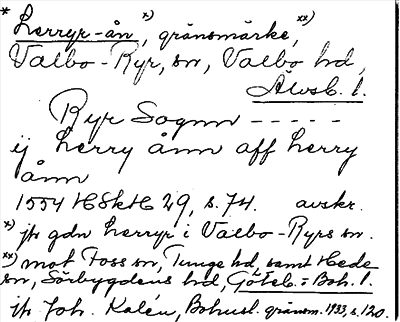 * Lerryr-ån *), gränsmärke, **)
Valbo-Ryr, sn, Valbo hd,
Älvsb. l.
Ryr Sognn - - - - -
ij Lerry ånn aff Lerry
ånn
1554 HSkH 29, s. 74. avskr.
*) jfr gdn Lerryr i Valbo-Ryrs sn.
**) mot Foss sn, Tunge hd, samt Hede
sn, Sörbygdens hd, Göteb. = Boh. l.
jfr Joh. Kalén, Bohusl. gränsm. 1933, s. 120.